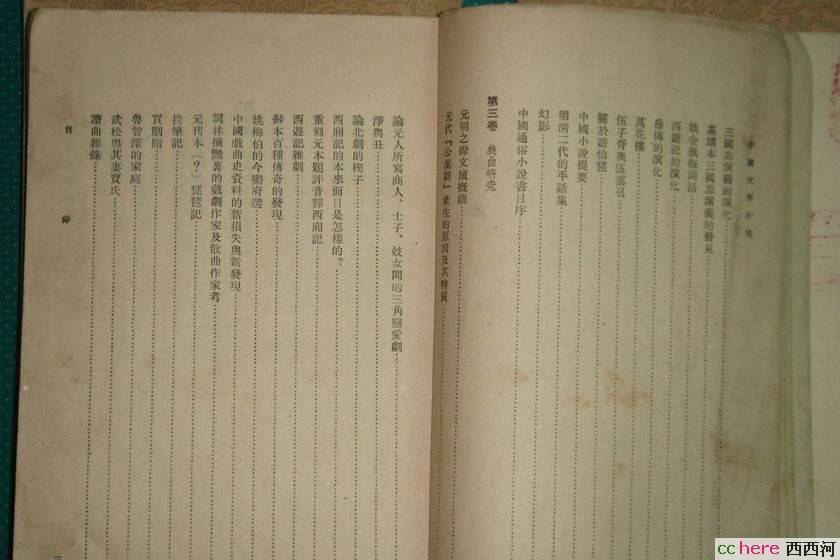 中國文學研究
三國志演義的演化
嘉靖本三國志演義的發見
談金瓶梅詞話
西遊記的演化
岳傳的演化
萬花樓
伍子胥與伍雲召
關於遊仙窟
中國小說提要
明清二代的平話集
幻影
中國通俗小說書目序
第三卷 戲曲研究
元明之際文壇概觀
元代『公案劇』產生的原因及其特質
論元人所寫商人、士子、妓女間的三角戀愛劇
淨與丑
論北劇的楔子
西廂記的本來面目是怎樣的?
重刻元本題評音釋西廂記
西遊記雜劇
鈔本百種傳奇的發現
姚梅伯的今樂府選
中國戲曲史資料的新損失與新發現
詞林摘豔裏的戲劇作家及散曲作家考
元刊本(?)琵琶記
投筆記
買胭脂
魯智深的家庭
武松與其妻賈氏
讀曲雜錄
目 錄
cchere 西西河